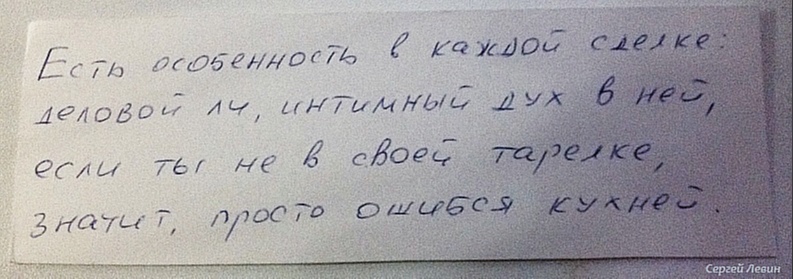 Есть особенность в каждой сделке:
деловой ли, интимный дух в ней,
если ты не в своей тарелке,
значит, просто ошибся кухней.
Сергей Левин